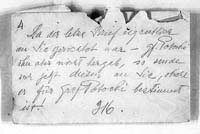 4
Da der letzte Brief eigentlich
an Sie gerichtet war – gf. Potocki
ihn aber nicht hergab, so sende
mir jetzt diesen an Sie, obwohl
er für Graf Potocki bestimmt
ist!